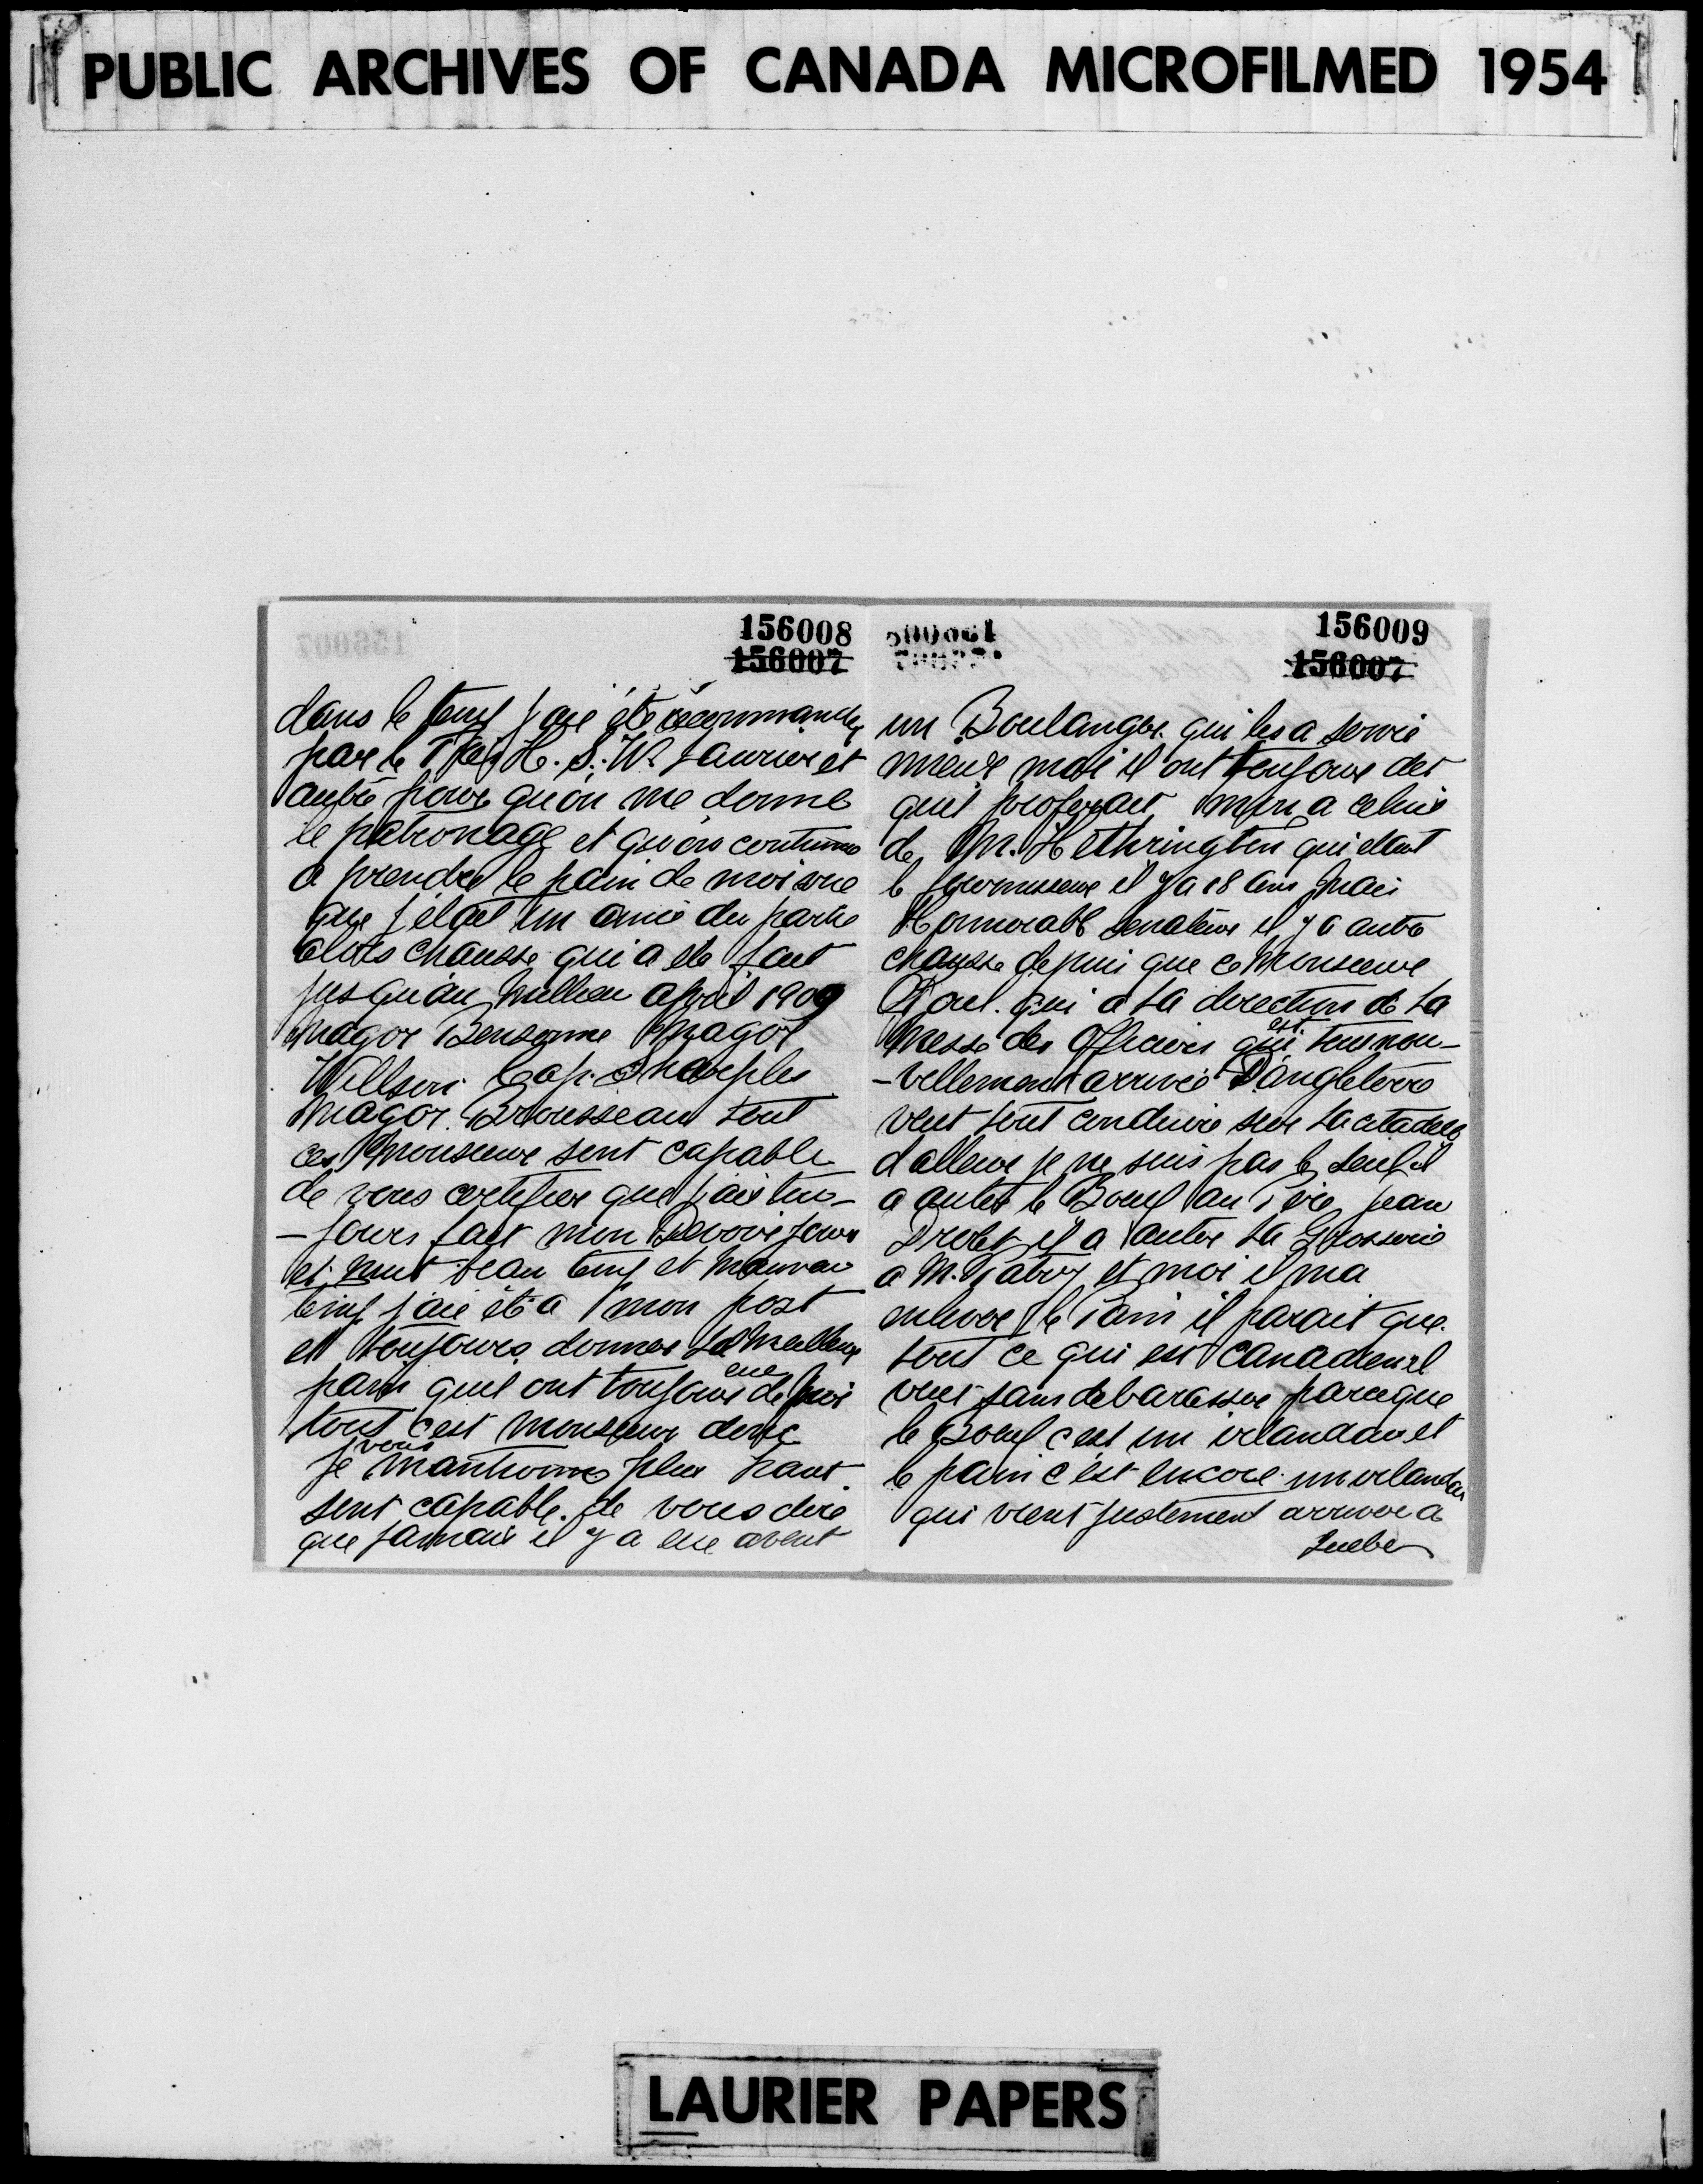 PUBLIC ARCHIVES OF CANADA MICROFILMED 1954
156008
156007
dans le temp j aie été recommandez
par le T Rai H. S. W. Laurier et
autre pour qu'on me donne
le patronage et qu'ons continue
a prendre le pain de moi vue
que j'etait un amie du partie
alors chausse qui a ete fait
jusqu'au millieu april 1909
Magor Bensonne Magor
Willson Cap. Sharples
Magor Brousseau tout
ces Monsieur sont capable
de vous certifier que j'aie tou-
-jours fait mon Devoir jour
et nuit beau temp et mauvai
temp j'aie été a mon post
et toujours donner la meilleur
pain quil ont toujours eue de puis
tout c'est monsieur donc
je vous mantionne plus haut
sont capable de vous dire
que jamais il y a eue avent
156009
156007
un Boulanger qui les a servie
mieux moi il ont toujours dit
quil proferait mon a celuis
de Mr. Hethrington qui etait
le fournisseur il y a 18 ans mais
Honnorable senateur il y a autre
chausse depuis que ce Monsieur
qui a la direction de la
Messe des Officiers qui est tous nou-
-vellement arrivée D'angleterre
veut tout conduire sur la citadelle
d'alleur je ne suis pas le seul il
a auter le Boeuf au Père jean
Drolet il a auter la Grosserie
a M. et moi il ma
enlever le Pain il parait que
tout ce qui est Canadien il
veut sans debarasser parceque
le Boeuf c'est un irlandais et
le pain c'est encore un irlandai
qui vient justement arriver a
Quebec
LAURIER PAPERS